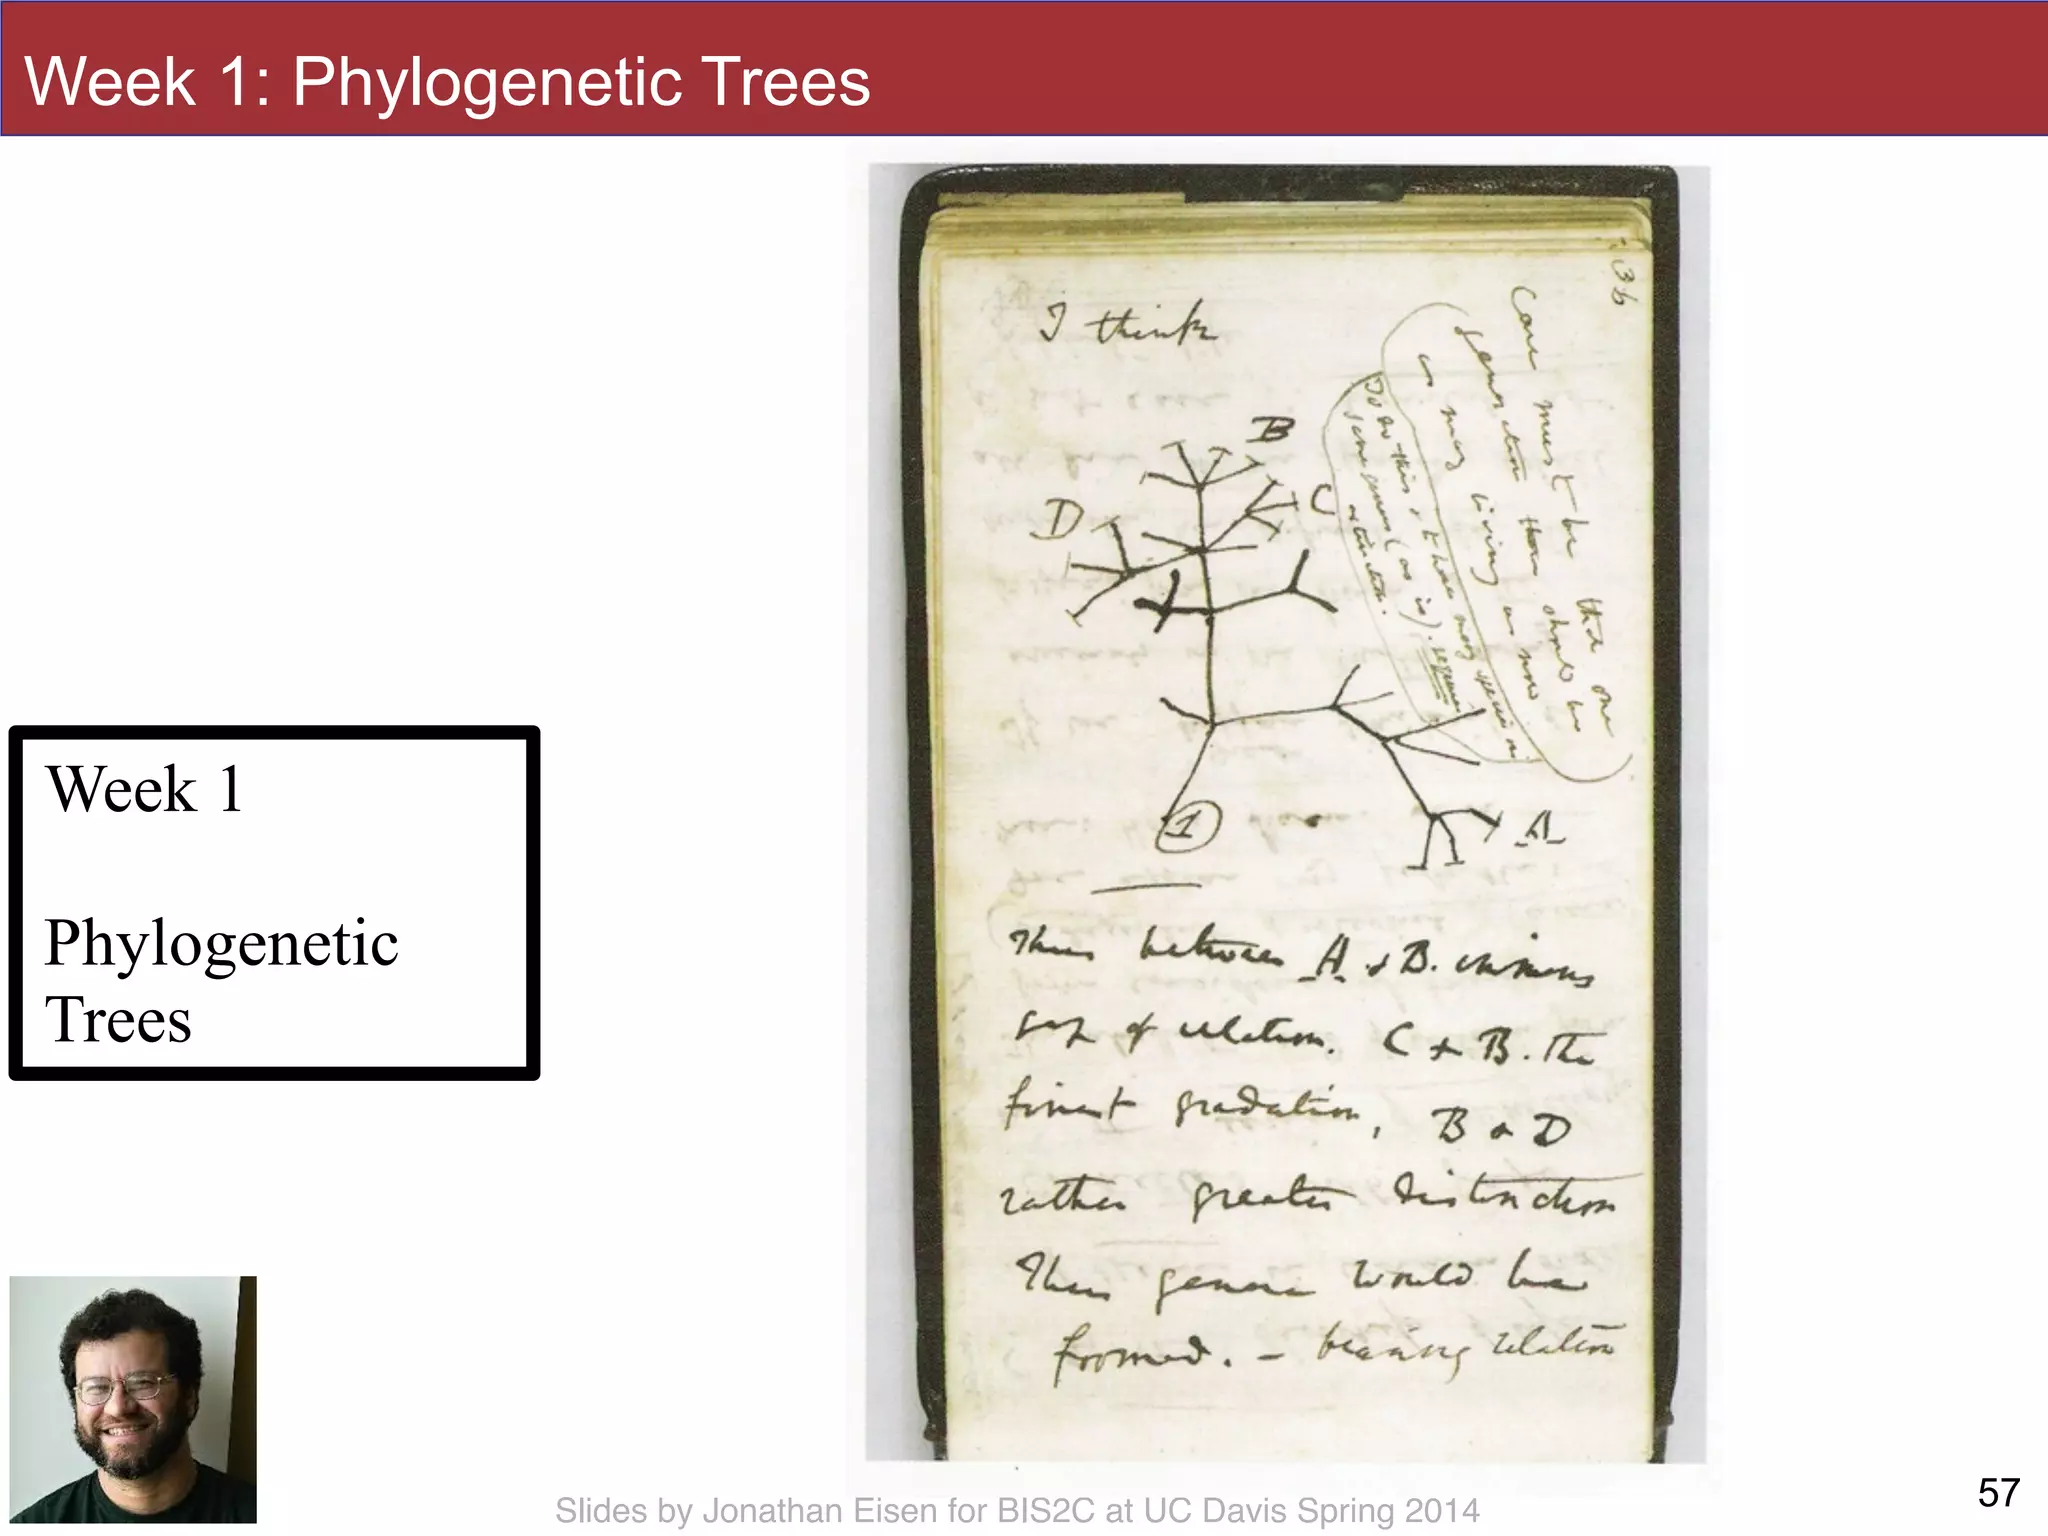 Week 1: Phylogenetic Trees
36
I think
Case must be that one
generation then should be
as many living as now
To do this & to have many species in
same genus (as is). requires
extinction.
B
C
D
A
1
Thus between A & B. immens
gap of relation. C & B. The
finest gradation, B & D
rather greater distinction
Thus genera would be
formed. – bearing relation
Week 1
Phylogenetic
Trees
Slides by Jonathan Eisen for BIS2C at UC Davis Spring 2014
57